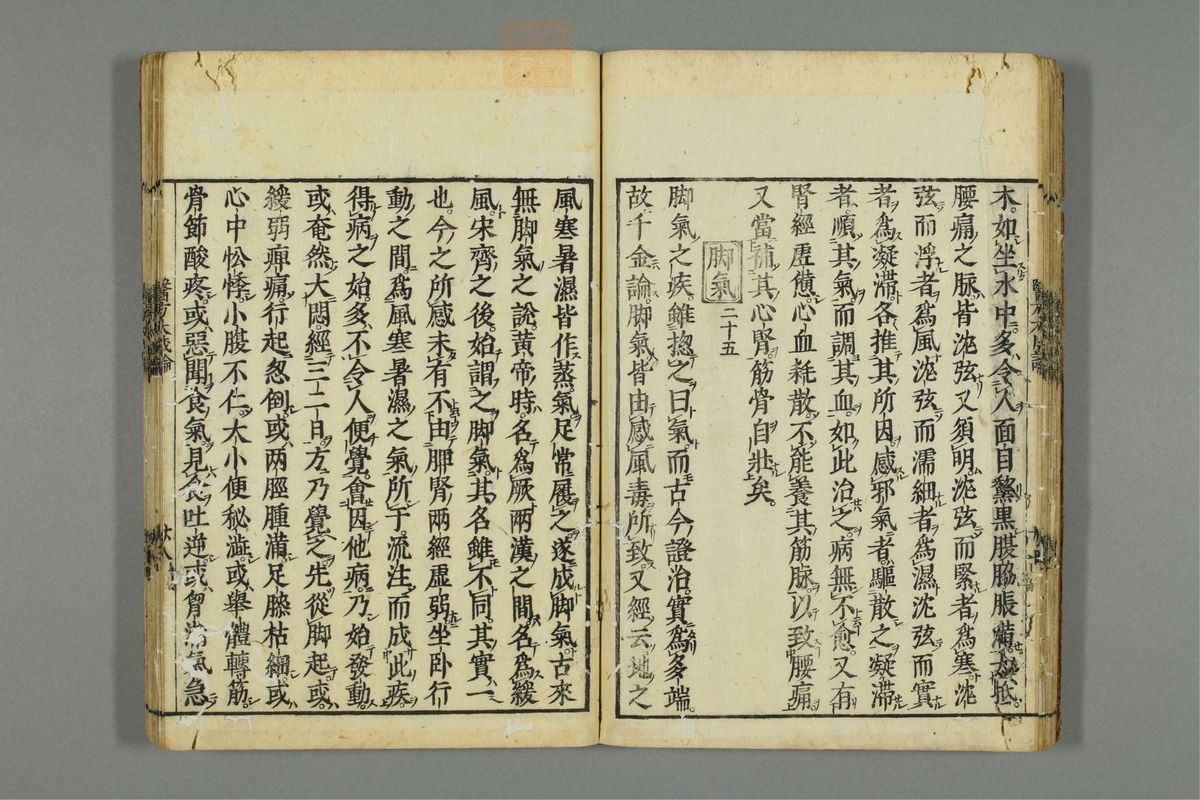 木如坐水中多令人面目黧黒腹脇脹滿大抵
腰痛之脉皆沈弦又須明沈弦而緊者爲寒沈
弦而浮者爲風沈弦而濡細者爲濕沈弦而實
者爲凝滞各推其所因感邪氣者驅散之凝滞
者順其氣而調其血如此治之病無不愈又有
腎經虚憊心血耗散不能養其筋脉以致腰痛
又當補其心腎筋骨自壯矣
脚氣 二十五
脚氣之疾雖揔之曰氣而古今證治實爲多端
故千金論脚氣皆由感風毒所致又經云地之
風寒暑濕皆作蒸氣足常履之遂成脚氣古來
無脚氣之說黄帝時名爲厥兩漢之間名爲緩
風宋齊之後始謂之脚氣其名雖不同其實一
也今之所感未有不由脾腎兩經虚弱坐卧行
動之間爲風寒暑濕之氣所干流注而成此疾
得病之始多不令人便覺會因他病乃始發動
或奄然大悶經三二日方乃覺之先從脚起或
緩弱痺痛行起忽倒或兩脛腫滿足膝枯細或
心中忪悸小腹不仁大小便秘澁或舉體轉筋
骨節酸疼或惡聞食氣見食吐逆或胷滿氣急